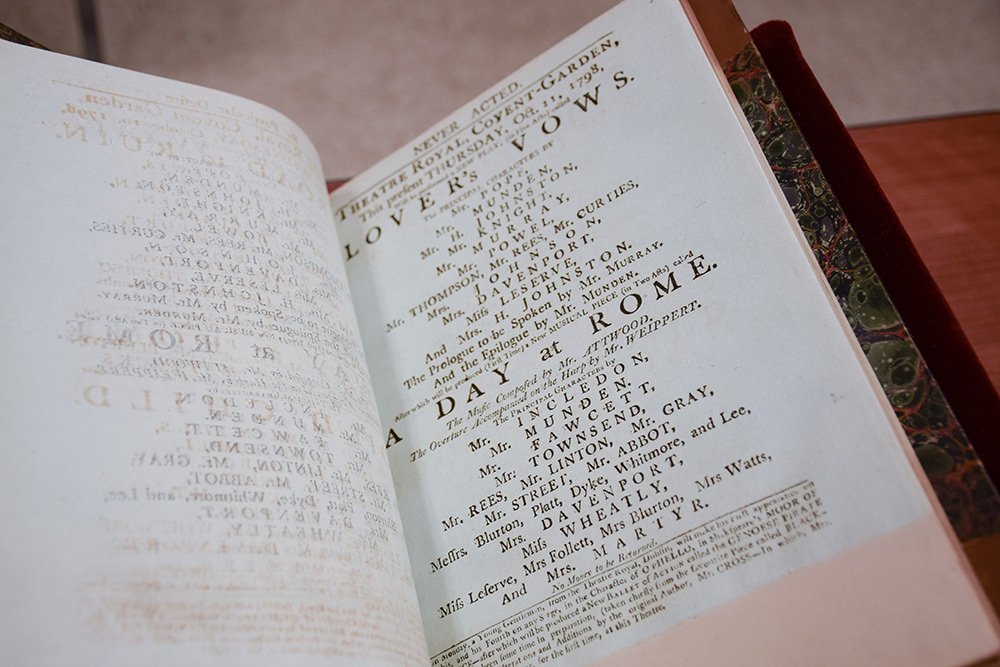 NEVER ACTED.
THEATRE ROYAL, COVENT-GARDEN,
This present THURSDAY, Oct. 11, 1798,
Will be presented a new PLAY, in Five Acts, called
LOVER's VOWS.
The PRINCIPAL CHARACTERS by
Mr. POPE,
Mr. MUNDEN,
Mr. H. JOHNSTON,
Mr. KNIGHT,
Mr. MURRAY,
Mr. POWEL,
Mr. THOMPSON, Mr. REES, Mr. CURTIES,
Mrs. JOHNSON,
Mrs. DAVENPORT,
Miss LESERVE,
And Mrs. H. JOHNSTON.
The Prologue to be Spoken by Mr. Murray.
And the Epilogue by Mr. MUNDEN.
After which will be produced (First Time) a New MUSICAL PIECE (in Two Acts) called
A DAY at ROME.
The Music Composed by Mr. ATTWOOD,
The Overture Accompanied on the Harp by Mr. WEIPPERT.
The PRINCIPAL CHARACTERS by
Mr. INCLEDON,
Mr. MUNDEN,
Mr. FAWCETT,
Mr. TOWNSEND,
Mr. REES, Mr. LINTON, Mr. GRAY,
Mr. STREET, Mr. ABBOT,
Messrs. Blurton, Platt, Dyke, Whitmore, and Lee,
Mrs. DAVENPORT,
Miss WHEATLY,
Miss Leserve, Mrs Follett, Mrs Blurton, Mrs Watts,
And Mrs. MARTYR.
No Money to be Returned.
Monday, a Young Gentleman, from the Theatre Royal, Dublin, will make his first appearance on
and his Fourth on any Stage, in the Character of OTHELLO, in Shakspeare's MOOR OF
after which will be produced a New BALLET of ACTION called the GENOESE PIRATE
been some time in preparation, (taken chiefly from the favourite Piece called BLACK
and Additions by the original Author, Mr. CROSS—In which, Mrs.
for the first time, at this Theatre.